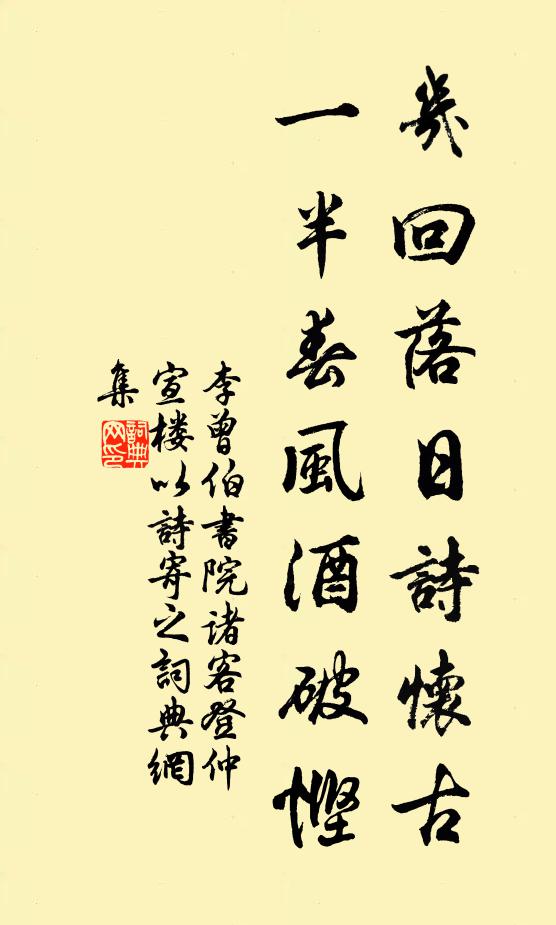 幾回落日詩懷古
一半春風酒破慳
李曾伯書院诸客登仲
宣楼以詩寄之詞典網
集
詞典網印